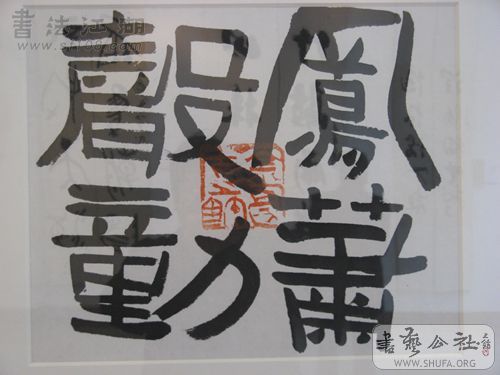 鳳蕭
聲動
書法江湖
www.sf108.com
書藝公社
WWW.SHUFA.ORG